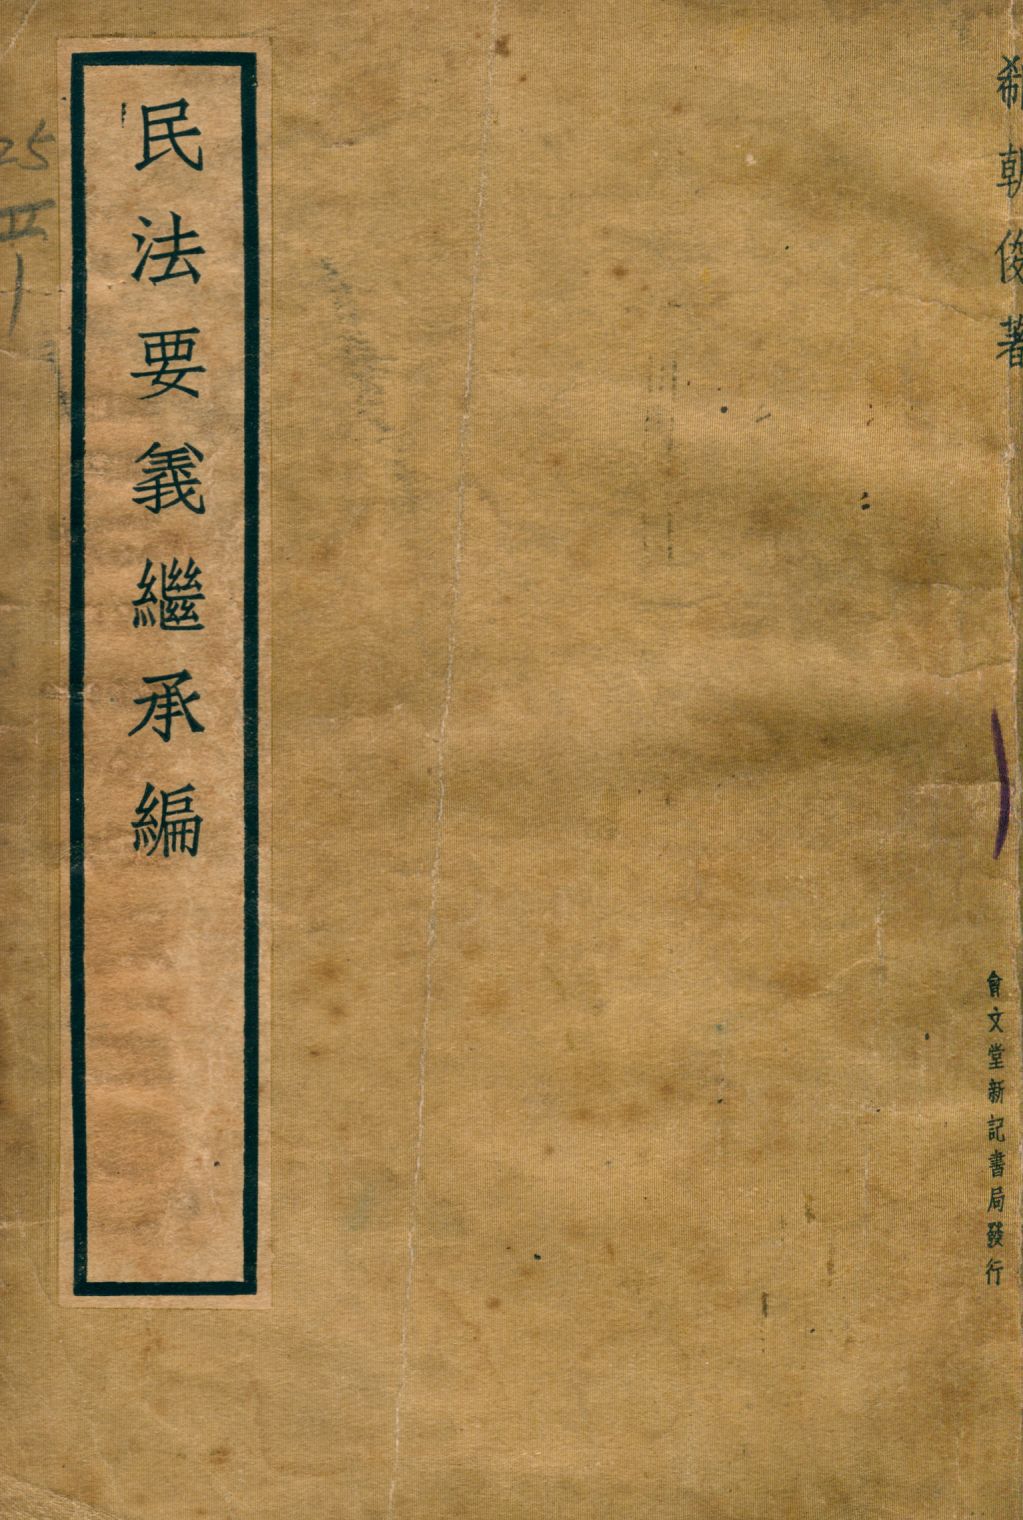 郗朝俊著
會文堂新記書局發行
民法要義繼承編
25
II
1